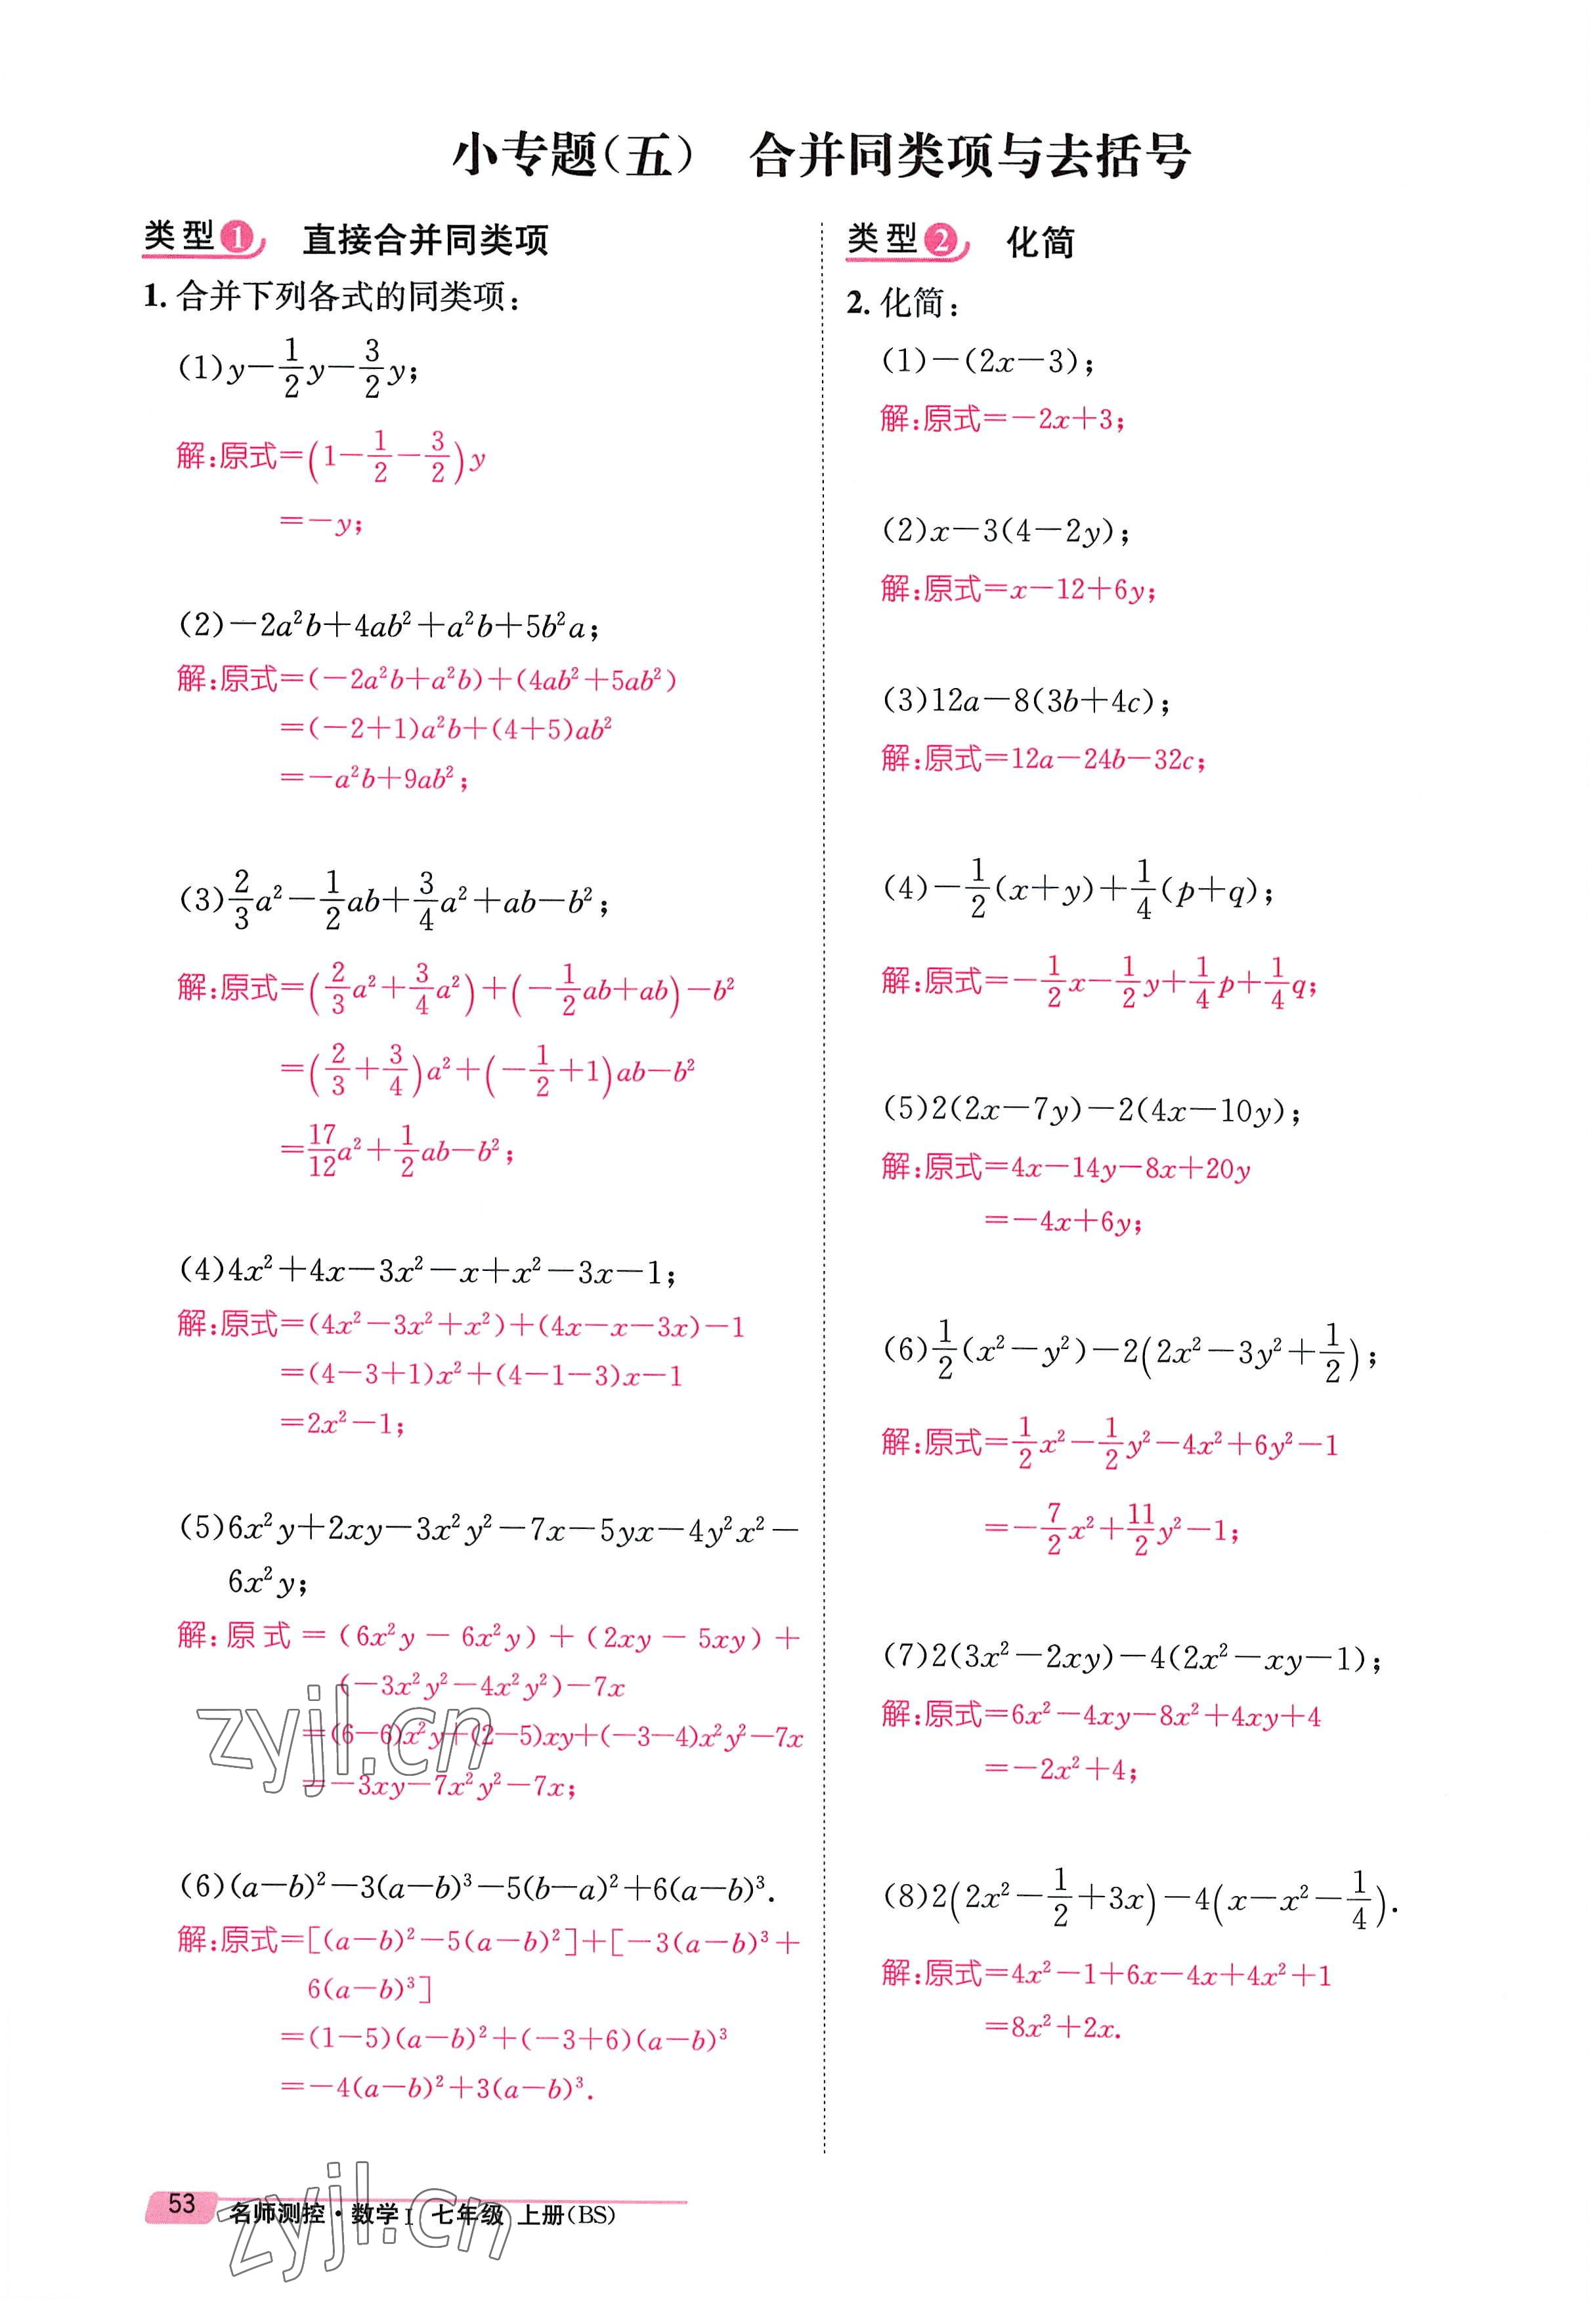 小专题(五) 合并同类项与去括号
类型1 直接合并同类项
1. 合并下列各式的同类项:
(1)y-\frac{1}{2}y-\frac{3}{2}y;
解:原式=(1-\frac{1}{2}-\frac{3}{2})y
=-y;
(2)-2a²b+4ab²+a²b+5b²a;
解:原式=(-2a²b+a²b)+(4ab²+5ab²)
=(-2+1)a²b+(4+5)ab²
=-a²b+9ab²;
(3)\frac{2}{3}a²-\frac{1}{2}ab+\frac{3}{4}a²+ab-b²;
解:原式=(\frac{2}{3}a²+\frac{3}{4}a²)+(-\frac{1}{2}ab+ab)-b²
=(\frac{2}{3}+\frac{3}{4})a²+(-\frac{1}{2}+1)ab-b²
=\frac{17}{12}a²+\frac{1}{2}ab-b²;
(4)4x²+4x-3x²-x+x²-3x-1;
解:原式=(4x²-3x²+x²)+(4x-x-3x)-1
=(4-3+1)x²+(4-1-3)x-1
=2x²-1;
(5)6x²y+2xy-3x²y²-7x-5yx-4y²x²-
6x²y;
解:原式=(6x²y-6x²y)+(2xy-5xy)+
(-3x²y²-4x²y²)-7x
=(6-6)x²y+(2-5)xy+(-3-4)x²y²-7x
=-3xy-7x²y²-7x;
(6)(a-b)²-3(a-b)³-5(b-a)²+6(a-b)³.
解:原式=[(a-b)²-5(a-b)²]+[-3(a-b)³+
6(a-b)³]
=(1-5)(a-b)²+(-3+6)(a-b)³
=-4(a-b)²+3(a-b)³.
类型2 化简
2. 化简:
(1)-(2x-3);
解:原式=-2x+3;
(2)x-3(4-2y);
解:原式=x-12+6y;
(3)12a-8(3b+4c);
解:原式=12a-24b-32c;
(4)-\frac{1}{2}(x+y)+\frac{1}{4}(p+q);
解:原式=-\frac{1}{2}x-\frac{1}{2}y+\frac{1}{4}p+\frac{1}{4}q;
(5)2(2x-7y)-2(4x-10y);
解:原式=4x-14y-8x+20y
=-4x+6y;
(6)\frac{1}{2}(x²-y²)-2(2x²-3y²+\frac{1}{2});
解:原式=\frac{1}{2}x²-\frac{1}{2}y²-4x²+6y²-1
=-\frac{7}{2}x²+\frac{11}{2}y²-1;
(7)2(3x²-2xy)-4(2x²-xy-1);
解:原式=6x²-4xy-8x²+4xy+4
=-2x²+4;
(8)2(2x²-\frac{1}{2}+3x)-4(x-x²-\frac{1}{4}).
解:原式=4x²-1+6x-4x+4x²+1
=8x²+2x.
zyjl.cn
53 名师测控·数学I 七年级 上册(BS)
zyjl.cn